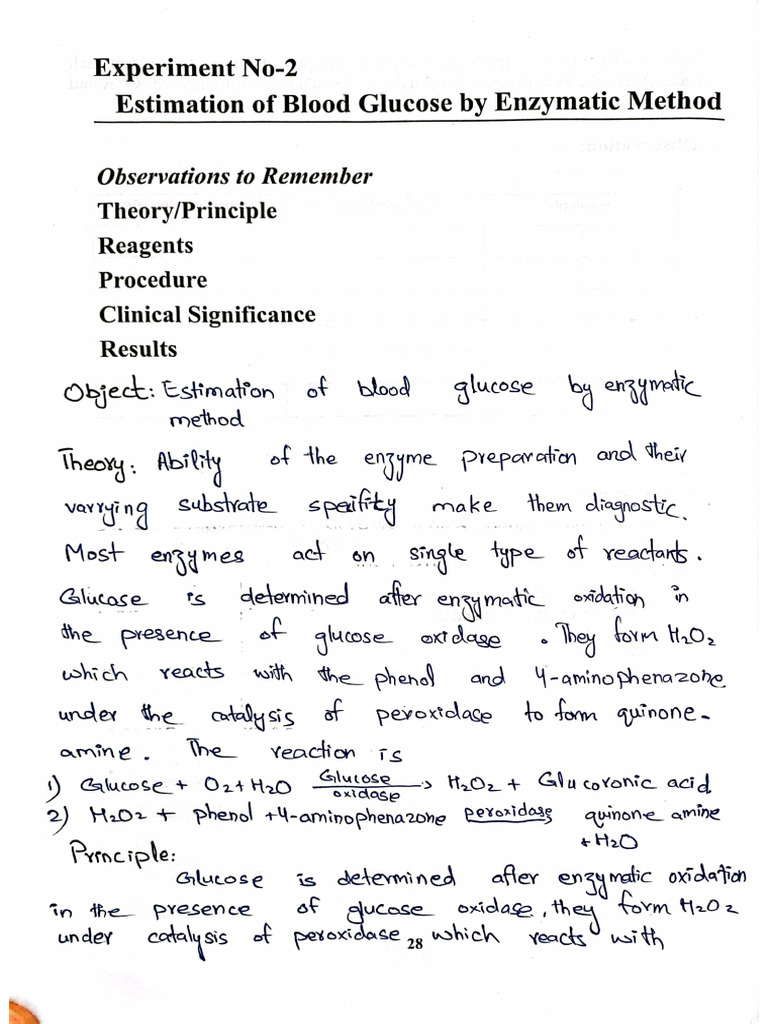 Experiment No-2
Estimation of Blood Glucose by Enzymatic Method
Observations to Remember
Theory/Principle
Reagents
Procedure
Clinical Significance
Results
Object: Estimation of blood glucose by enzymatic
method
Theory: Ability of the enzyme preparation and their
varrying substrate speifity make them diagnostic.
Most enzymes act on single type of reactants.
Glucose is determined after enzymatic oxidation in
the presence of glucose oxidase. They form H2O2
which reacts with the phenol and 4-aminophenazone
under the catalysis of peroxidase to form quinone-
amine. The reaction is
1) Glucose + O2+H2O Glucose oxidase → H2O2 + Glucoronic acid
2) H2O2 + phenol +4-aminophenazone peroxidase quinone amine
+H2O
Principle:
Glucose is determined after enzymatic oxidation
in the presence of glucose oxidase, they form H2O2
under catalysis of peroxidase which reacts with
28